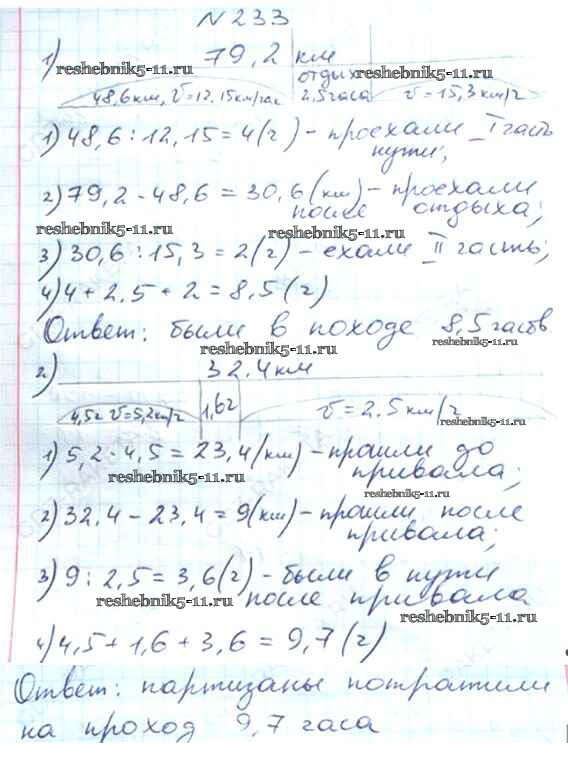 N 233
1) 79,2 км
reshebnik5-11.ru отдых reshebnik5-11.ru
48,6км, v=12,15км/час 2,5часа v=15,3км/г
1) 48,6 : 12,15 = 4(г) - проехали I гасть
пути;
2) 79,2 - 48,6 = 30,6 (км) - проехали
после отдыха;
reshebnik5-11.ru reshebnik5-11.ru
3) 30,6 : 15,3 = 2(г) - ехали II гасть;
4) 4 + 2,5 + 2 = 8,5 (г)
Ответ: были в походе 8,5 гасов
reshebnik5-11.ru reshebnik5-11.ru
2) 32,4км
4,5г v=5,2км/г 1,6г v = 2,5 км/г
1) 5,2 · 4,5 = 23,4 (км) - прошли до
привала;
reshebnik5-11.ru reshebnik5-11.ru
2) 32,4 - 23,4 = 9(км) - прошли после
привала;
3) 9 : 2,5 = 3,6(г) - были в пути
после привала
reshebnik5-11.ru reshebnik5-11.ru
4) 4,5 + 1,6 + 3,6 = 9,7 (г)
Ответ: партизаны потратили
на проход 9,7 гаса